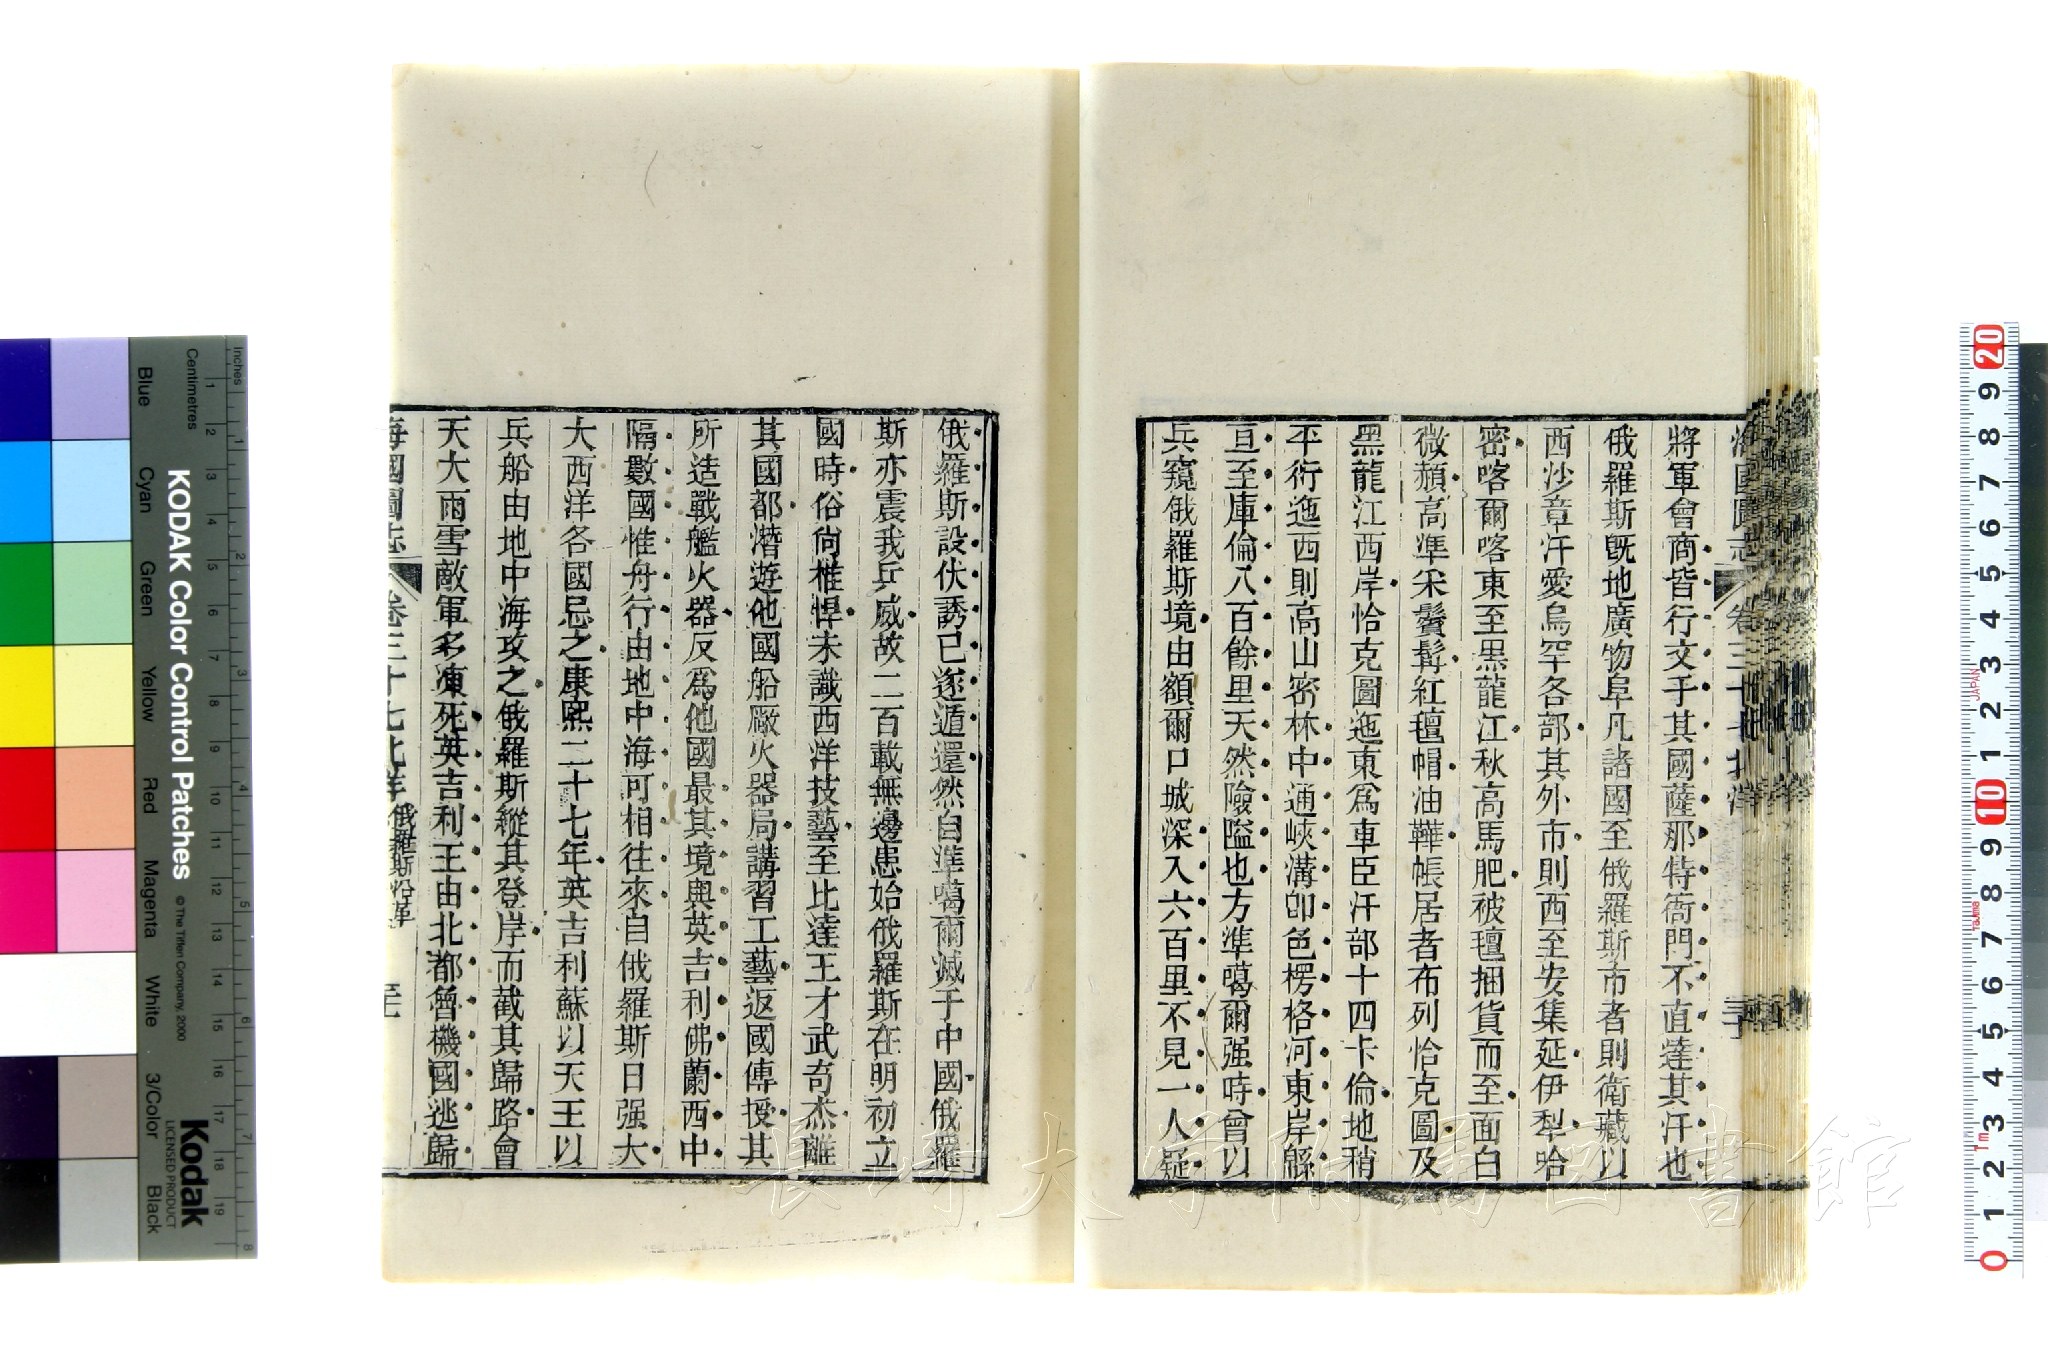 將軍會商皆行文手其國薩那特衙門不直達其汗也
俄羅斯旣地廣物阜凡諸國至俄羅斯市者則衛藏以
西沙章汗愛烏罕各部其外市則西至安集延伊犁哈
密喀爾喀東至黑龍江秋高馬肥被氊捆貨而至面白
微頳高準釆鬢髯紅氊帽油鞾帳居者布列恰克圖及
黑龍江西岸恰克圖迤東爲車臣汗部十四卡倫地稍
平衍迤西則高山密林中通峽溝卽色楞格河東岸緜
亘至庫倫八百餘里天然險隘也方準噶爾强時曾以
兵窺俄羅斯境由額爾口城深入六百里不見一人疑
俄羅斯設伏誘己遂遁還然自準噶爾滅于中國俄羅
斯亦震我兵威故二百載無邊患始俄羅斯在明初立
國時俗尙椎悍未識西洋技藝至比達王才武奇杰離
其國都潛遊他國船廠火器局講習工藝返國傳授其
所造戰艦火器反爲他國最其境與英吉利佛蘭西中
隔數國惟舟行由地中海可相往來自俄羅斯日强大
大西洋各國忌之康熙二十七年英吉利蘇以天王以
兵船由地中海攻之俄羅斯縱其登岸而截其歸路會
天大雨雪敵軍多凍死英吉利王由北都魯機國逃歸
海國圖志
卷三十七北洋
俄羅斯沿革
長崎大学附属図書館
KODAK Color Control Patches
© The Tiffen Company, 2000
Kodak
LICENSED PRODUCT
Centimetres
Inches
Blue
Cyan
Green
Yellow
Red
Magenta
White
3/Color
Black
1 2 3 4 5 6 7 8 9 10 11 12 13 14 15 16 17 18 19
1 2 3 4 5 6 7 8
20 9 8 7 6 5 4 3 2 1 10 9 8 7 6 5 4 3 2 1 0
JAPAN
Tajima
1m